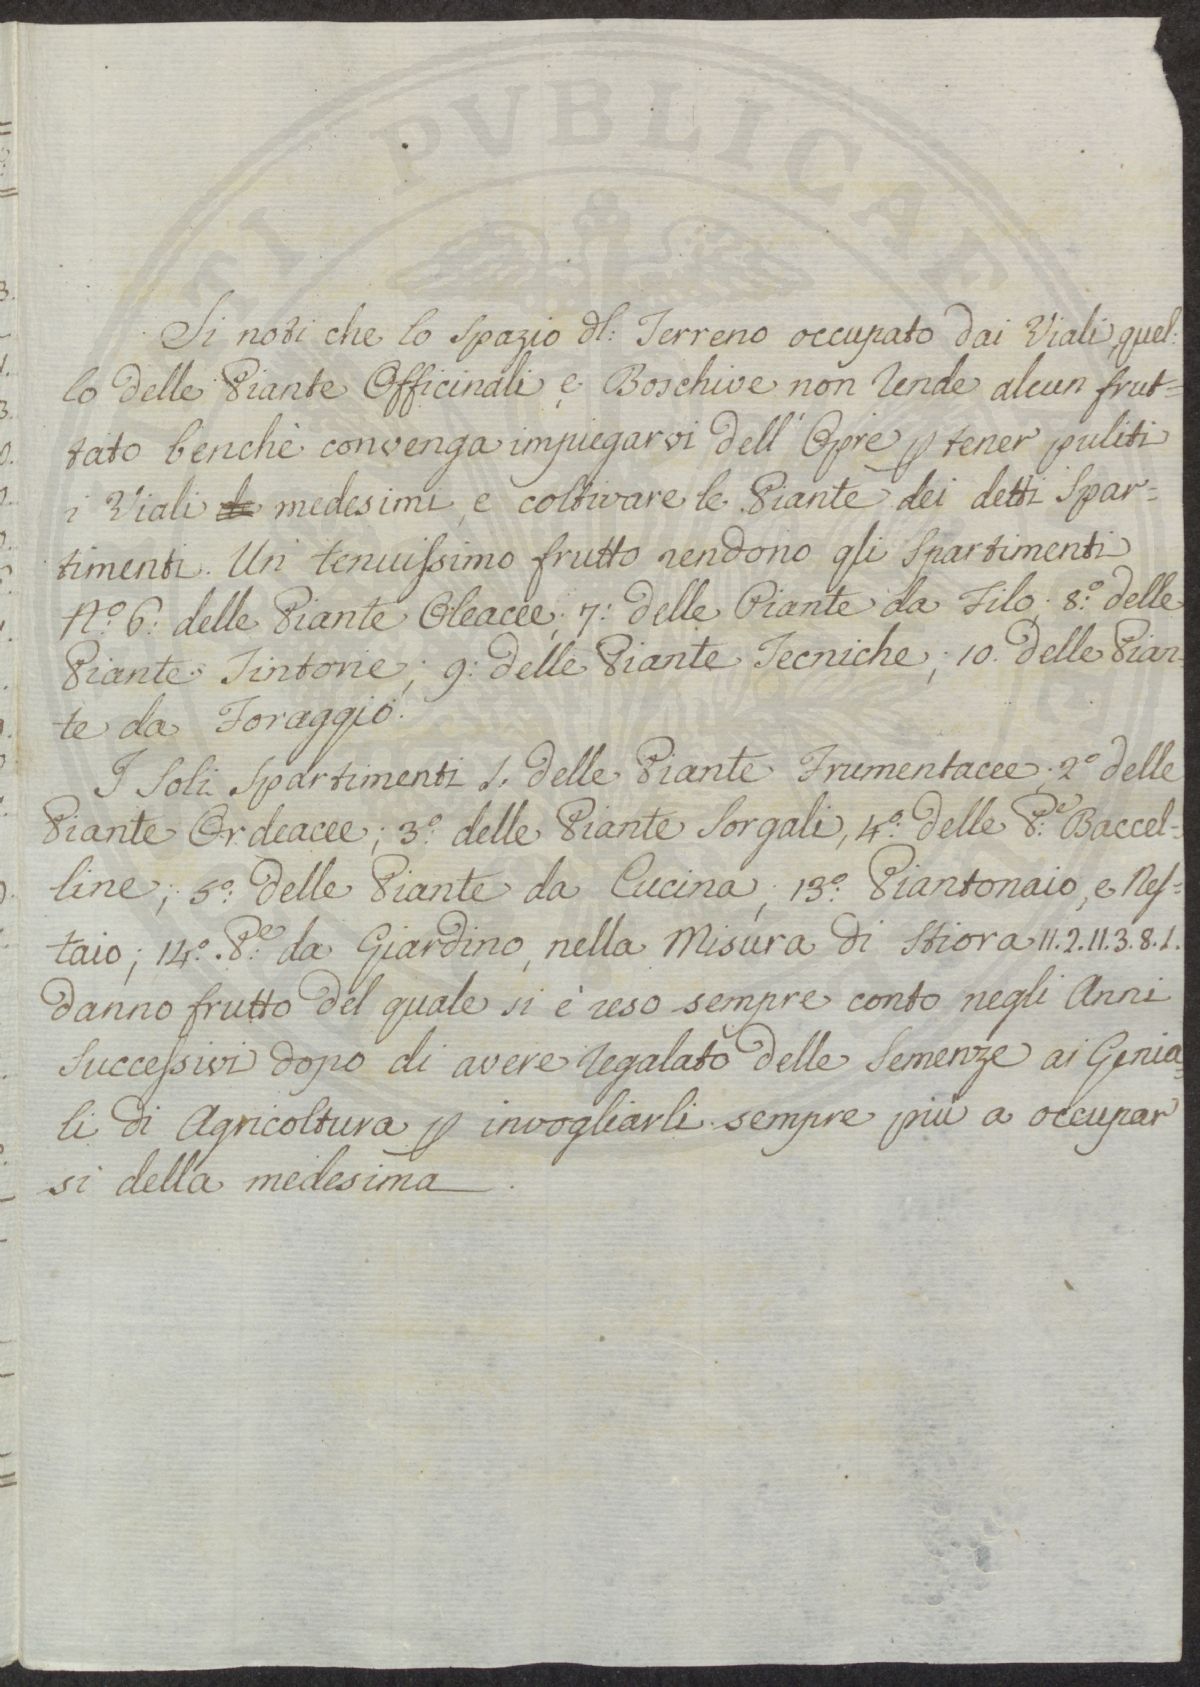 TI PVBLICAE
Si noti che lo Spazio dl: Terreno occupato dai Viali, quel:
lo delle Piante Officinali, e Boschive non rende alcun frut=
tato benchè convenga impiegarvi dell' Opre p tener puliti
i Viali medesimi, e coltivare le Piante dei detti Spar=
timenti. Un tenuissimo frutto rendono gli Spartimenti
N.º 6: delle Piante Oleacee; 7: delle Piante da Filo; 8.º delle
Piante Tintorie; 9: delle Piante Tecniche; 10. delle Pian-
te da Foraggio.
I Soli Spartimenti 1. delle Piante Frumentacee; 2º delle
Piante Ordeacee; 3.º delle Piante Sorgali, 4.º delle P.e Baccel=
line; 5.º delle Piante da Cucina; 13.º Piantonaio, e Nes=
taio; 14.º P.e da Giardino, nella Misura di Stiora 11.2.11.3.8.1.
danno frutto del quale si è reso sempre conto negli Anni
Successivi dopo di avere regalato delle Semenze ai Genia=
li di Agricoltura p invogliarli sempre più a occupar
si della medesima.